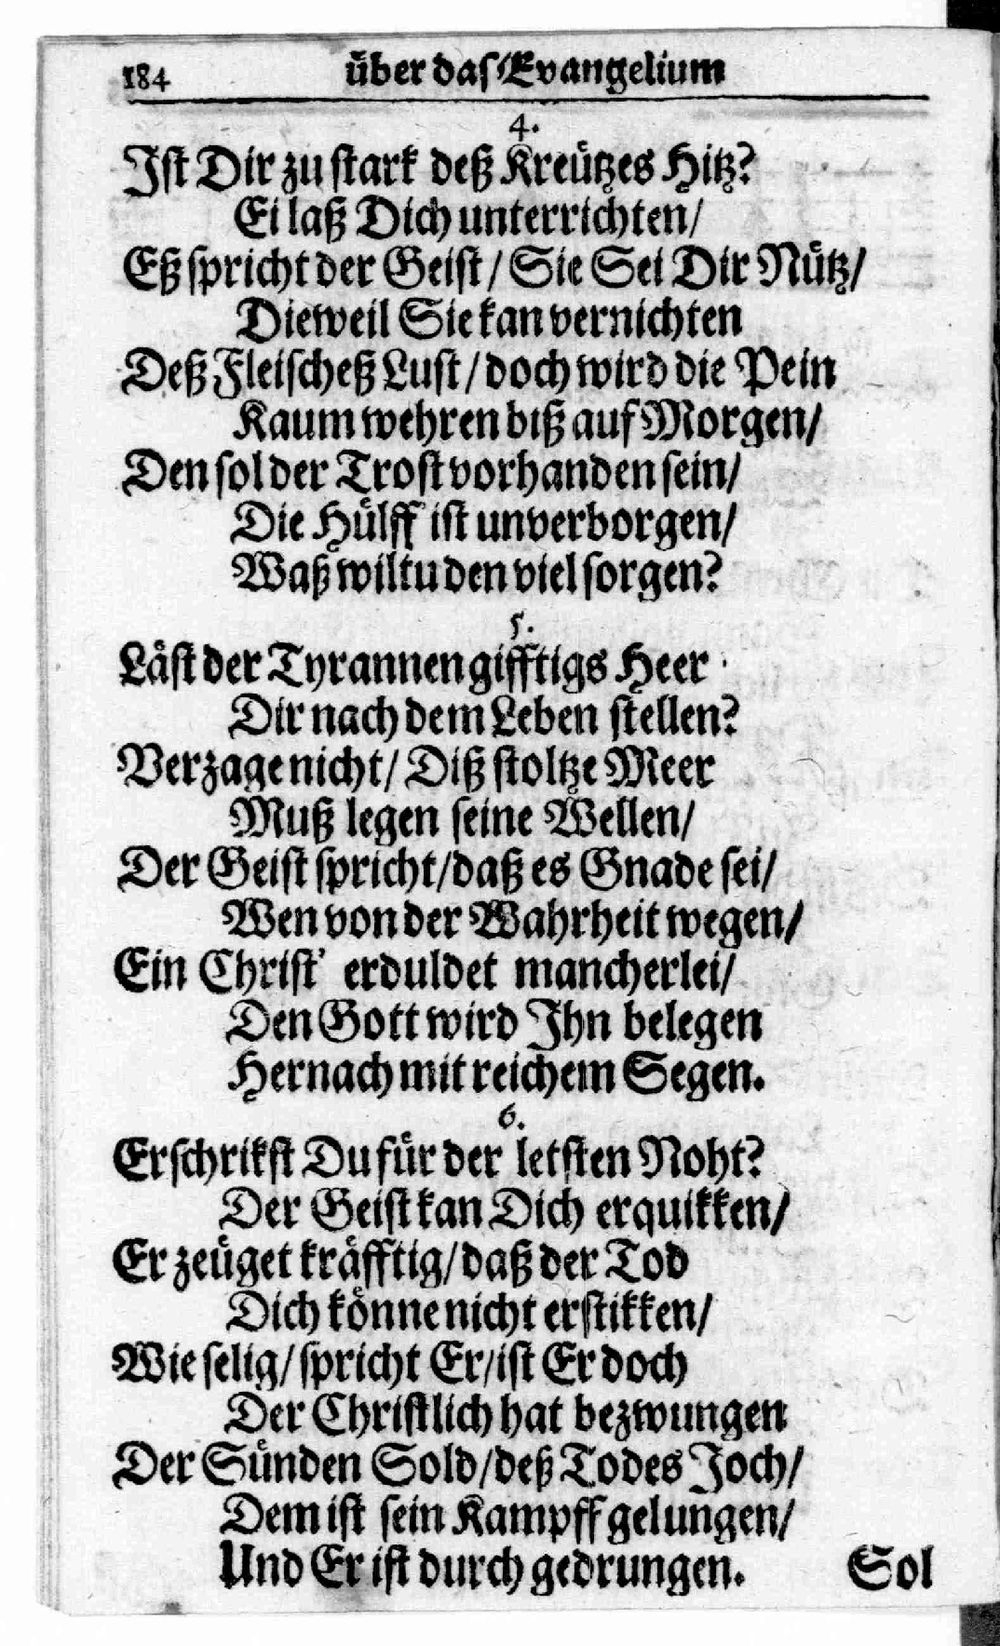 184 über das Evangelium
4.
Ist Dir zu stark deß Kreützes Hitz?
Ei laß Dich unterrichten/
Eß spricht der Geist/ Sie Sei Dir Nütz/
Dieweil Sie kan vernichten
Deß Fleischeß Lust/ doch wird die Pein
Kaum wehren biß auf Morgen/
Den sol der Trost vorhanden sein/
Die Hülff ist unverborgen/
Waß wiltu den viel sorgen?
5.
Läst der Tyrannen gifftigs Heer
Dir nach dem Leben stellen?
Verzage nicht/ Diß stoltze Meer
Muß legen seine Wellen/
Der Geist spricht/ daß es Gnade sei/
Wen von der Wahrheit wegen/
Ein Christ' erduldet mancherlei/
Den Gott wird Ihn belegen
Hernach mit reichem Segen.
6.
Erschrikst Du für der letsten Noht?
Der Geist kan Dich erquikken/
Er zeüget kräfftig/ daß der Tod
Dich könne nicht erstikken/
Wie selig/ spricht Er/ ist Er doch
Der Christlich hat bezwungen
Der Sünden Sold/ deß Todes Joch/
Dem ist sein Kampff gelungen/
Und Er ist durch gedrungen.
Sol